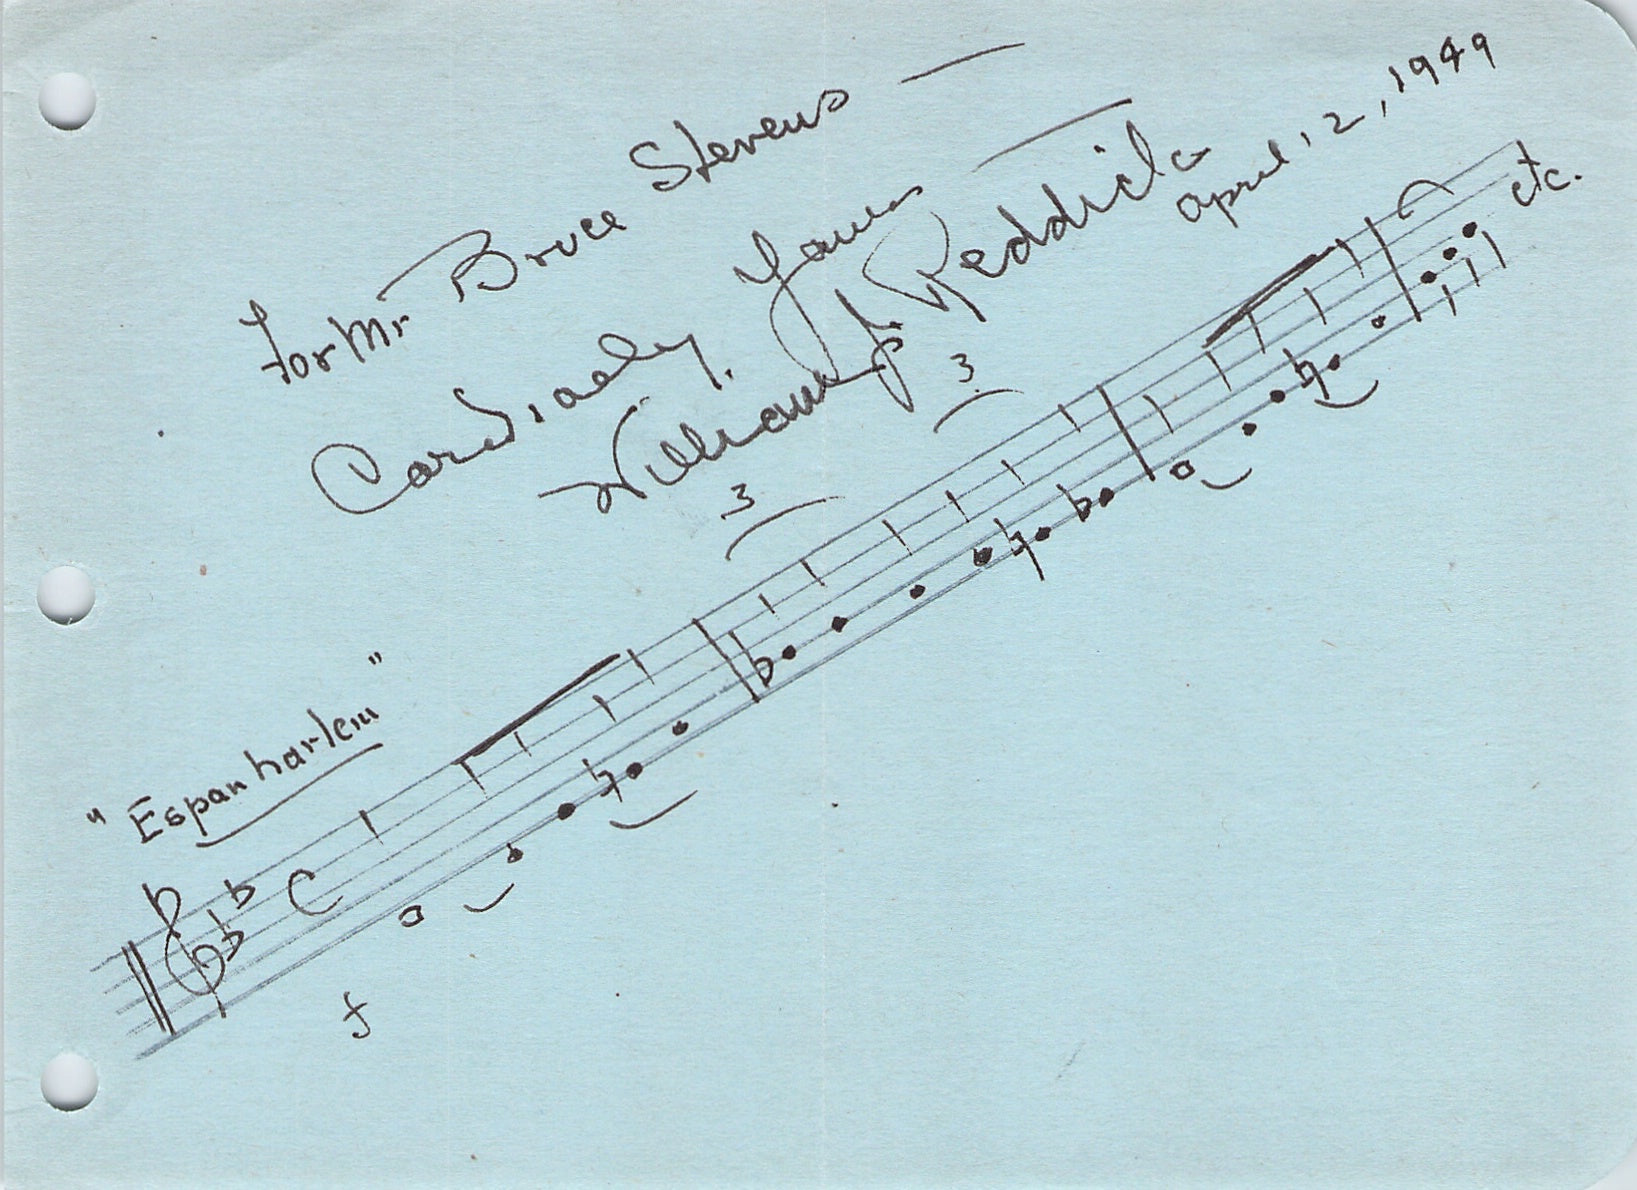 For Mr Bruce Stevens —
Cordially Yours —
William J. Reddick
April, 2, 1949
"Espanharlem"
C
3
3
f
etc.